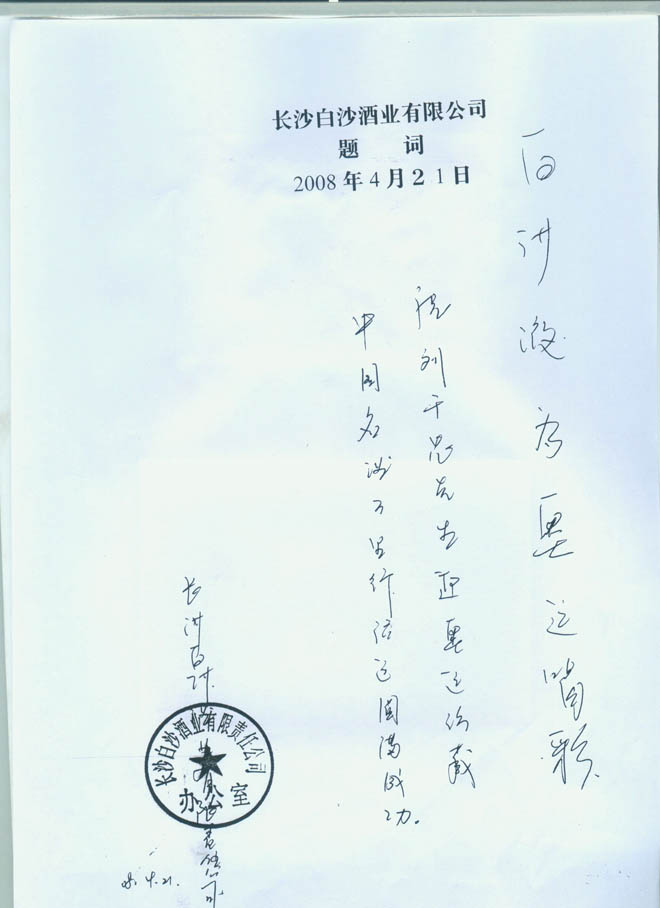 长沙白沙酒业有限公司
题 词
2008年4月21日
白沙液为奥运喝彩
祝刘干忠先生迎奥运
中国名酒万里行活动圆满成功。
长沙白沙酒业有限责任公司
长沙白沙酒业有限责任公司
办公室
08.4.21.